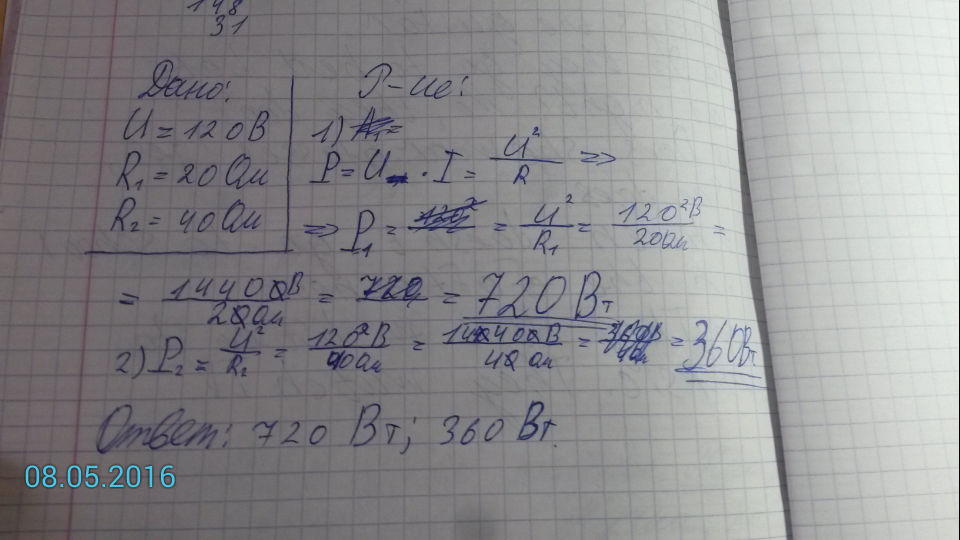 148
31
Дано:
U = 120В
R₁ = 20 Ом
R₂ = 40 Ом
Р-ие:
1)
P = U · I = U²/R =>
=> P₁ = = U²/R₁ = 120²В/20Ом =
= 14400В/20Ом = = 720 Вт
2) P₂ = U²/R₂ = 120²В/40Ом = 14400В/40 Ом = = 360Вт
Ответ: 720 Вт; 360 Вт.
08.05.2016